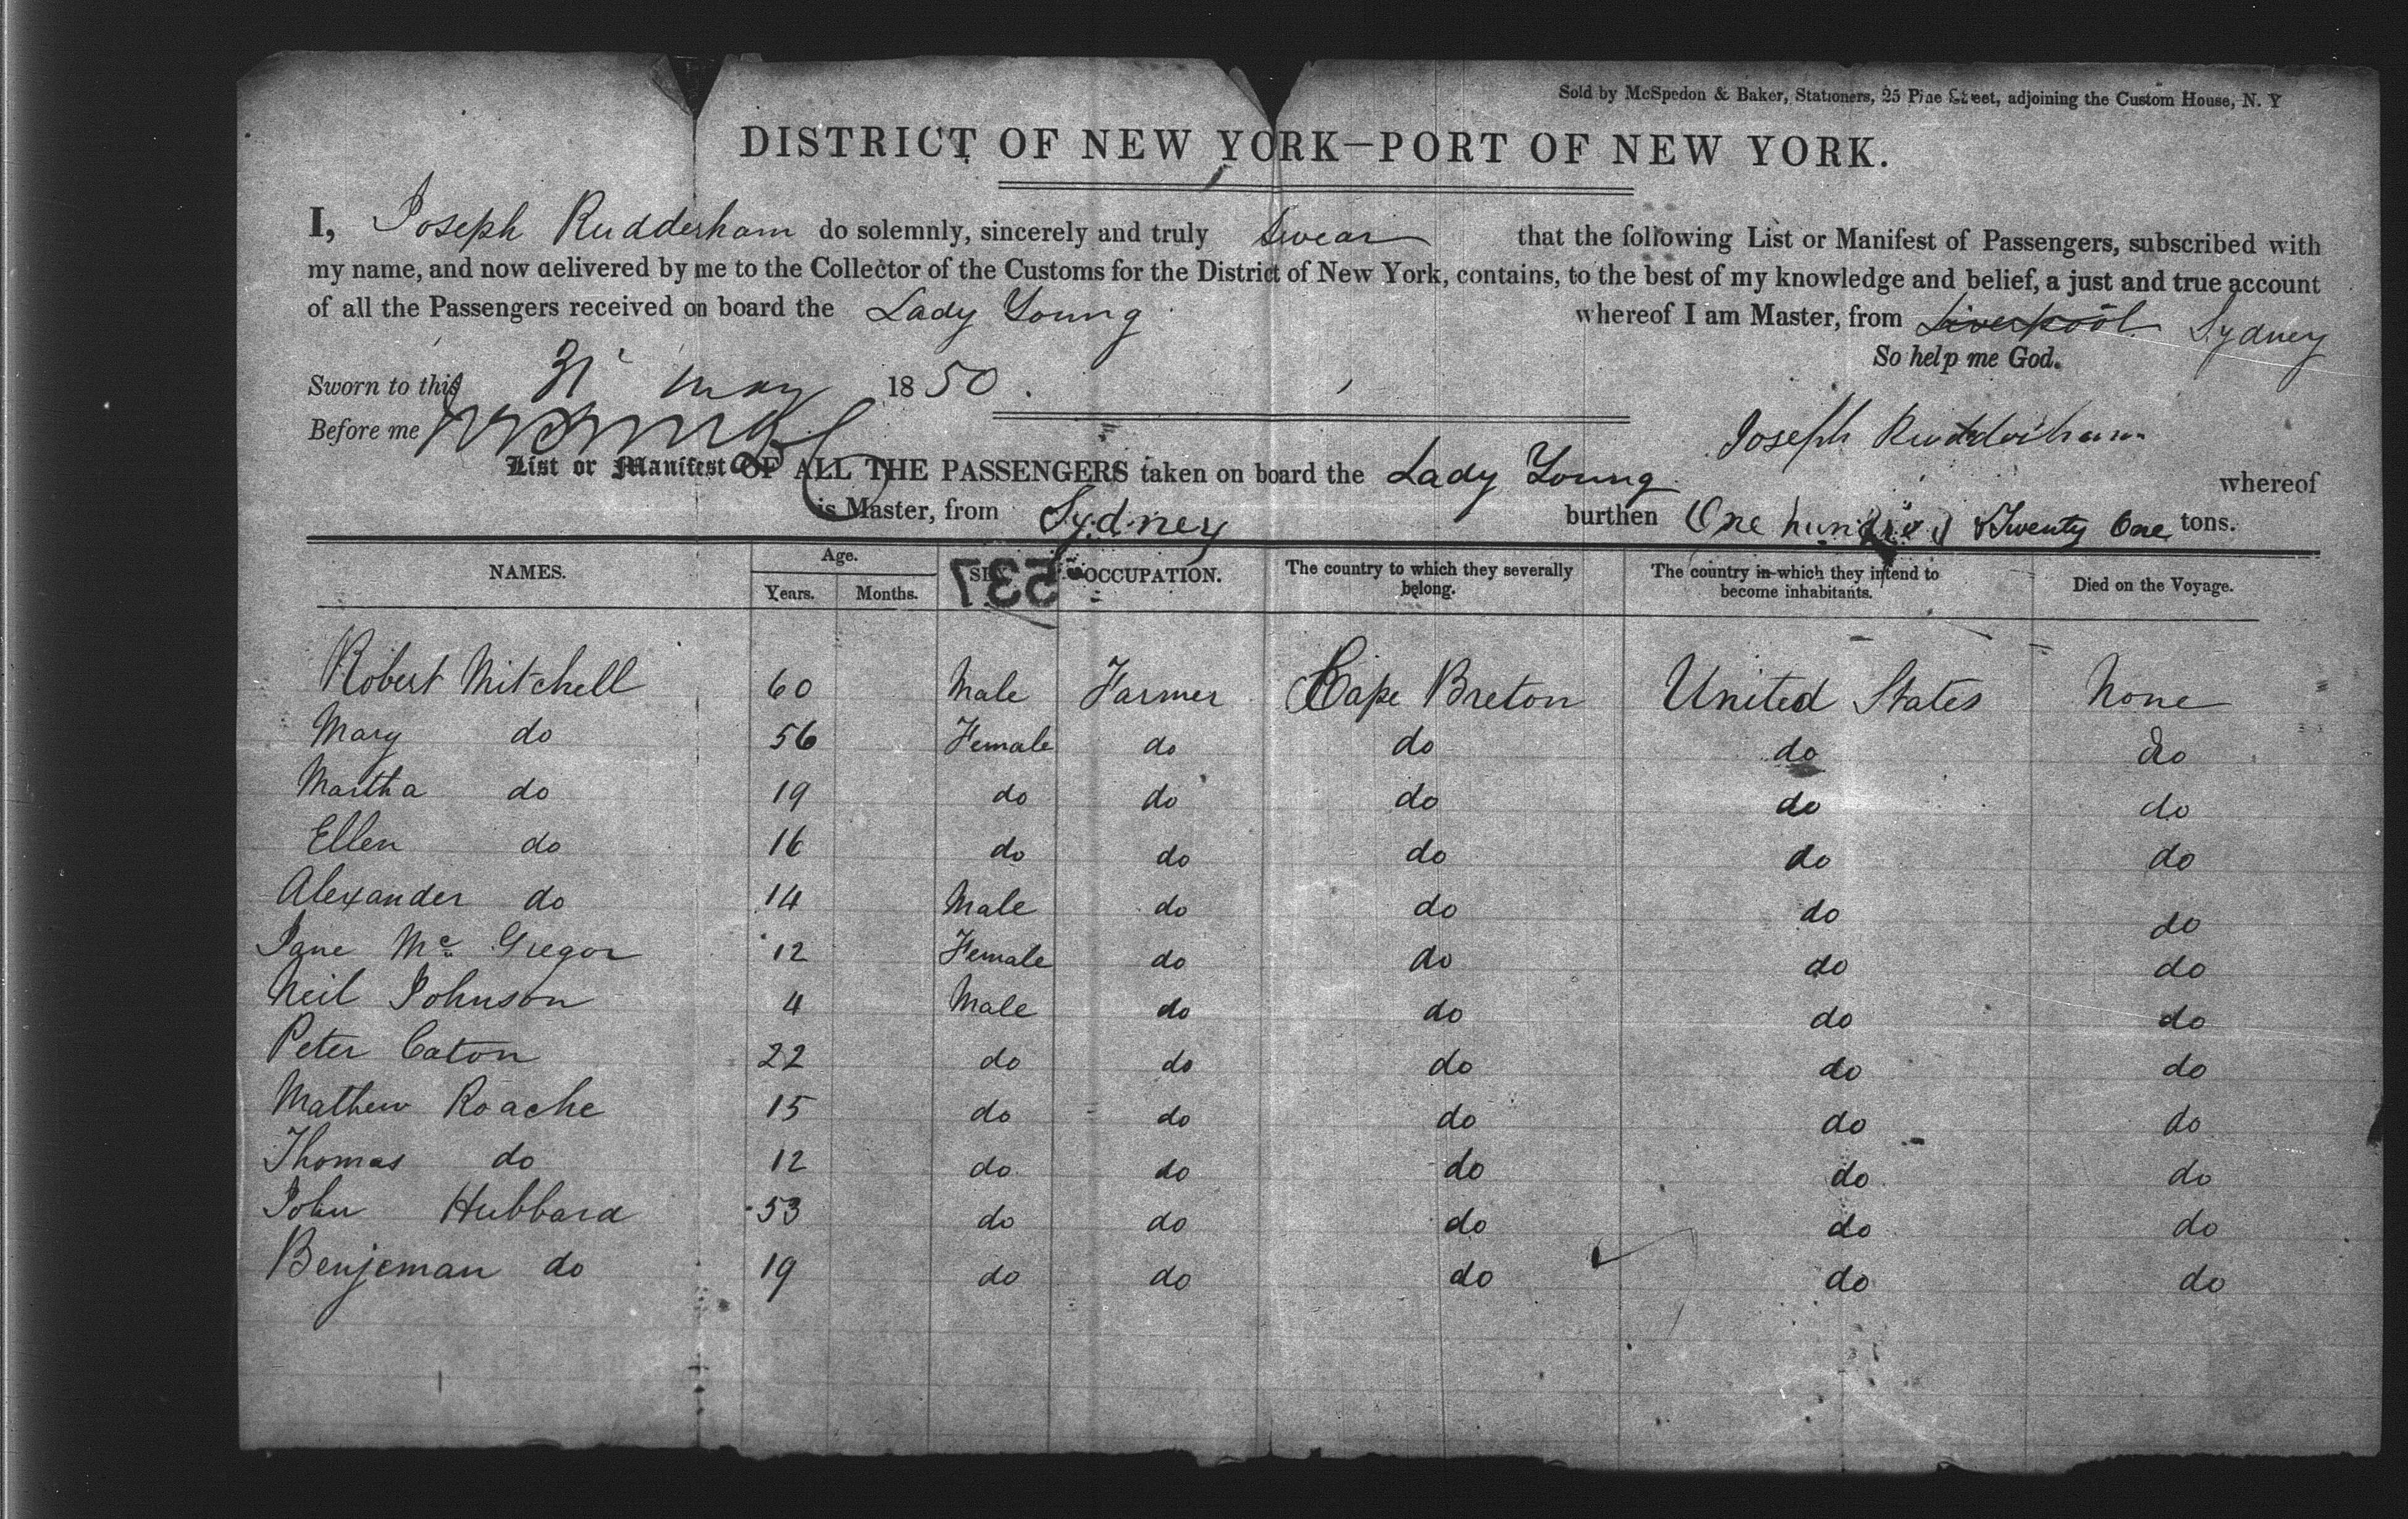 Sold by McSpedon & Baker, Stationers, 25 Pine Street, adjoining the Custom House, N. Y
DISTRICT OF NEW YORK—PORT OF NEW YORK.
I, Joseph Rudderham do solemnly, sincerely and truly Swear that the following List or Manifest of Passengers, subscribed with
my name, and now delivered by me to the Collector of the Customs for the District of New York, contains, to the best of my knowledge and belief, a just and true account
of all the Passengers received on board the Lady Young whereof I am Master, from Liverpool Sydney
So help me God.
Sworn to this 31 May 1850.
Before me
Joseph Rudderham
List or Manifest OF ALL THE PASSENGERS taken on board the Lady Young whereof
is Master, from Sydney burthen One hundred & Twenty One tons.
NAMES. Age. Years. Months. SEX. OCCUPATION. The country to which they severally belong. The country in which they intend to become inhabitants. Died on the Voyage.
537
Robert Mitchell 60 Male Farmer Cape Breton United States None
Mary do 56 Female do do do do
Martha do 19 do do do do do
Ellen do 16 do do do do do
Alexander do 14 Male do do do do
Jane Mc Gregor 12 Female do do do do
Neil Johnson 4 Male do do do do
Peter Caton 22 do do do do do
Mathew Roache 15 do do do do do
Thomas do 12 do do do do do
John Hubbard 53 do do do do do
Benjeman do 19 do do do do do